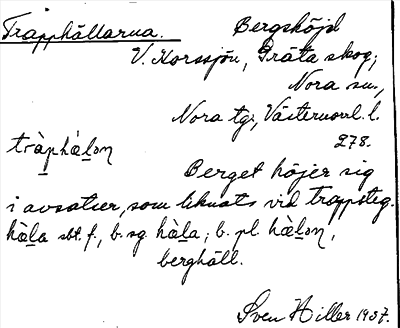 Trapphällarna. Bergshöjd
V. Korssjön, Gräta skog,
Nora sn.,
Nora tgr, Västernorrl. l.
278.
tràphæ̀lɔn
Berget höjer sig
i avsatser, som liknats vid trappsteg.
hæ̀la sbt. f., b. sg. hæ̀la; b. pl. hæ̀lɔn,
berghäll.
Sven Hiller 1937.